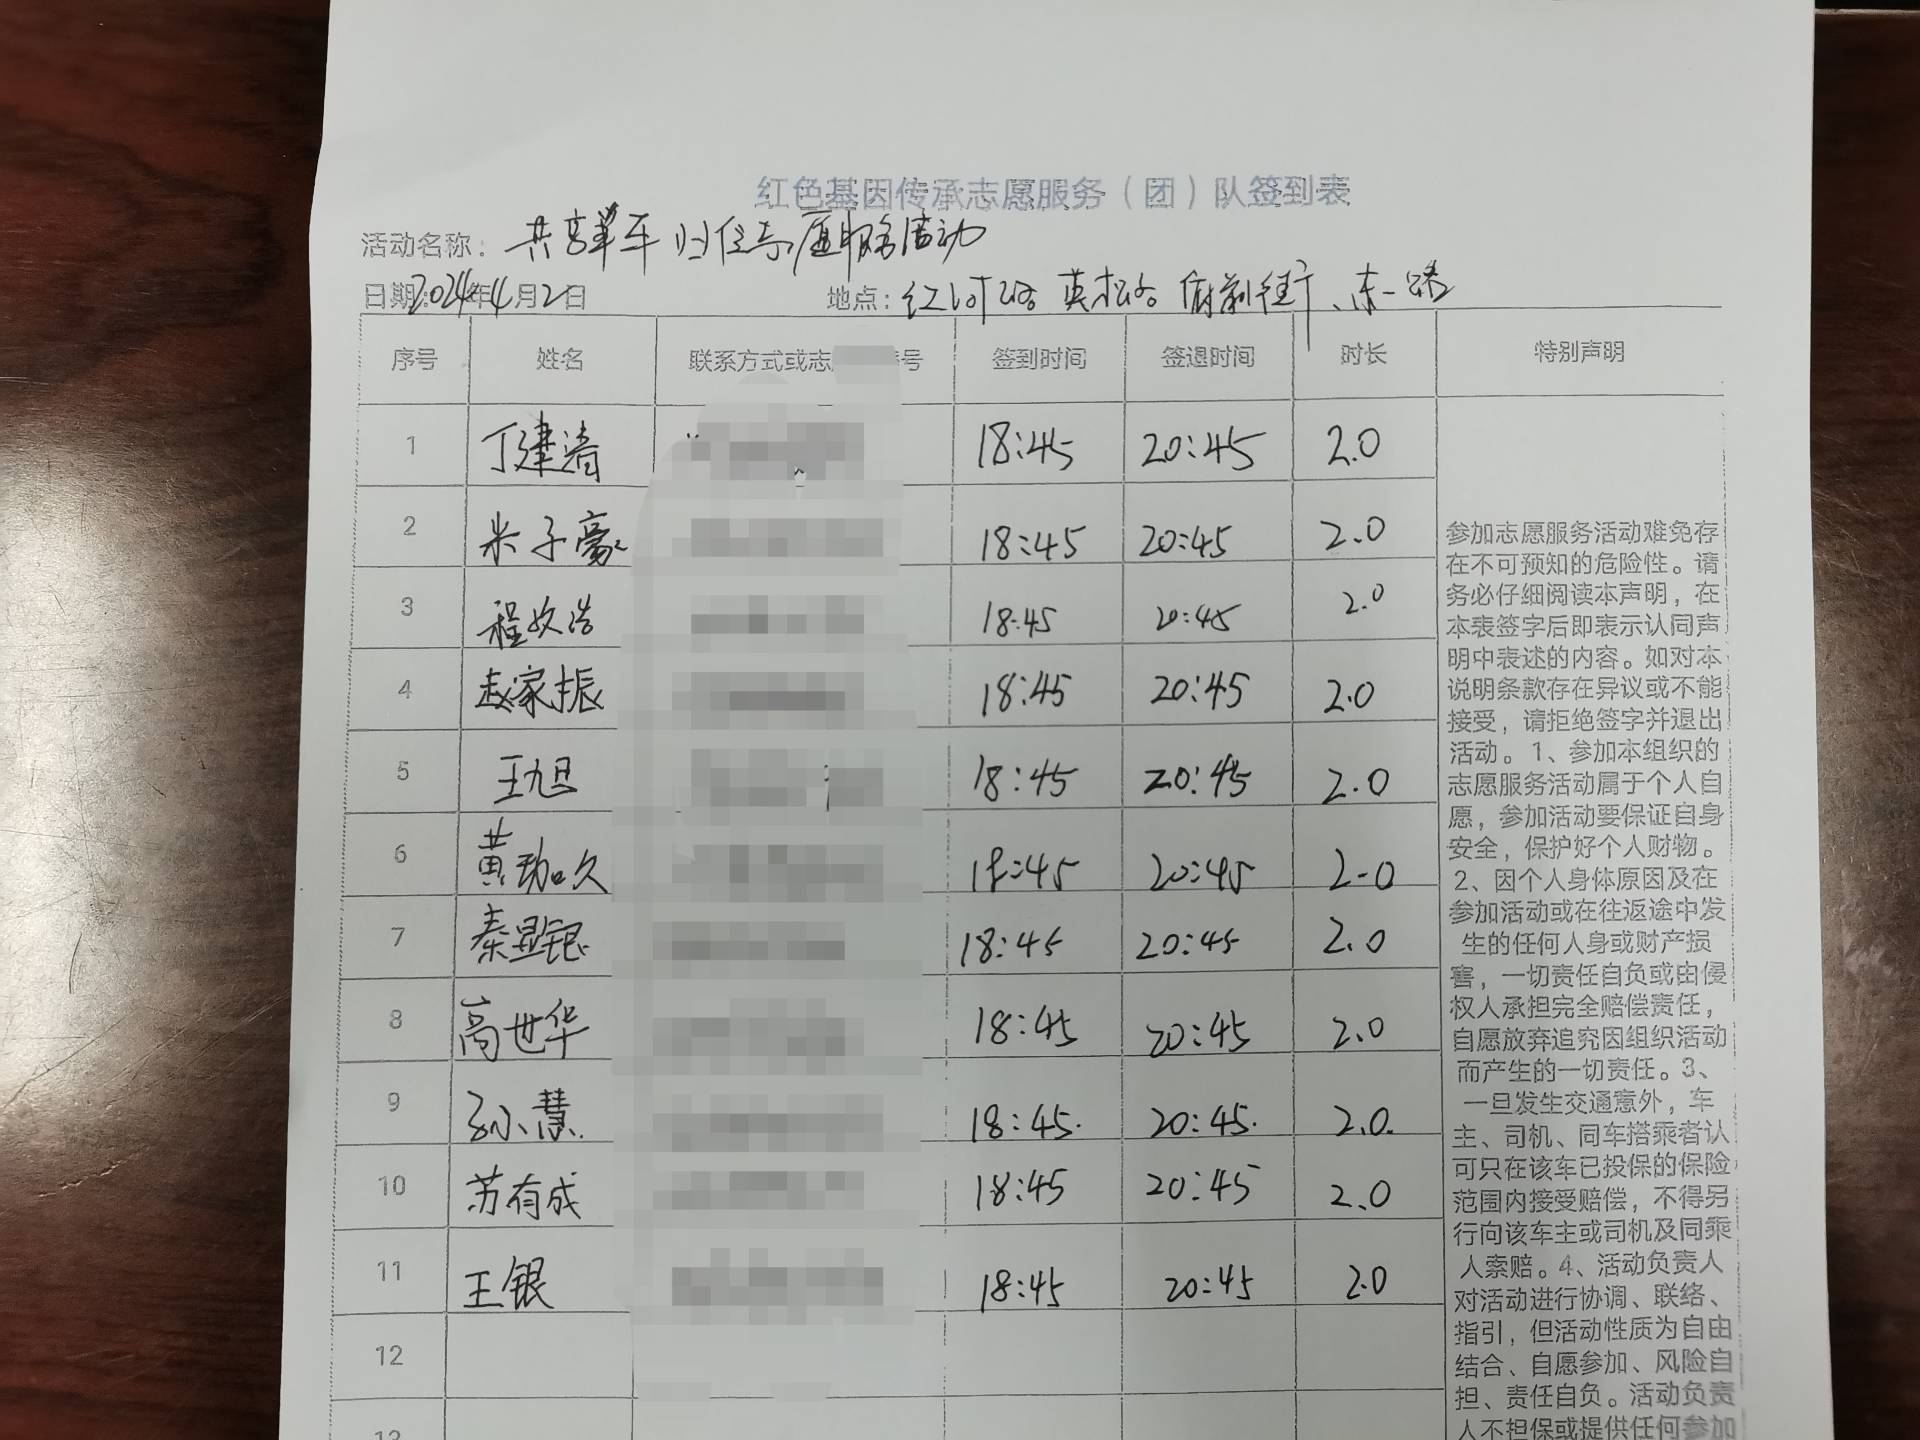 红色基因传承志愿服务（团）队签到表
活动名称： 共享单车归位志愿服务活动
日期：2024年4月2日 地点：红河路 英松路 府前街、东一路
序号 姓名 联系方式或志 号 签到时间 签退时间 时长 特别声明
1 丁建清 18:45 20:45 2.0
2 米子豪 18:45 20:45 2.0
3 程 浩 18:45 20:45 2.0
4 赵家振 18:45 20:45 2.0
5 王旭 18:45 20:45 2.0
6 黄 18:45 20:45 2.0
7 秦显银 18:45 20:45 2.0
8 高世华 18:45 20:45 2.0
9 孙慧 18:45 20:45 2.0
10 苏有成 18:45 20:45 2.0
11 王银 18:45 20:45 2.0
12
13
参加志愿服务活动难免存
在不可预知的危险性。请
务必仔细阅读本声明，在
本表签字后即表示认同声
明中表述的内容。如对本
说明条款存在异议或不能
接受，请拒绝签字并退出
活动。1、参加本组织的
志愿服务活动属于个人自
愿，参加活动要保证自身
安全，保护好个人财物。
2、因个人身体原因及在
参加活动或在往返途中发
生的任何人身或财产损
害，一切责任自负或由侵
权人承担完全赔偿责任，
自愿放弃追究因组织活动
而产生的一切责任。3、
一旦发生交通意外，车
主、司机、同车搭乘者认
可只在该车已投保的保险
范围内接受赔偿，不得另
行向该车主或司机及同乘
人索赔。4、活动负责人
对活动进行协调、联络、
指引，但活动性质为自由
结合、自愿参加、风险自
担、责任自负。活动负责
人不担保或提供任何参加